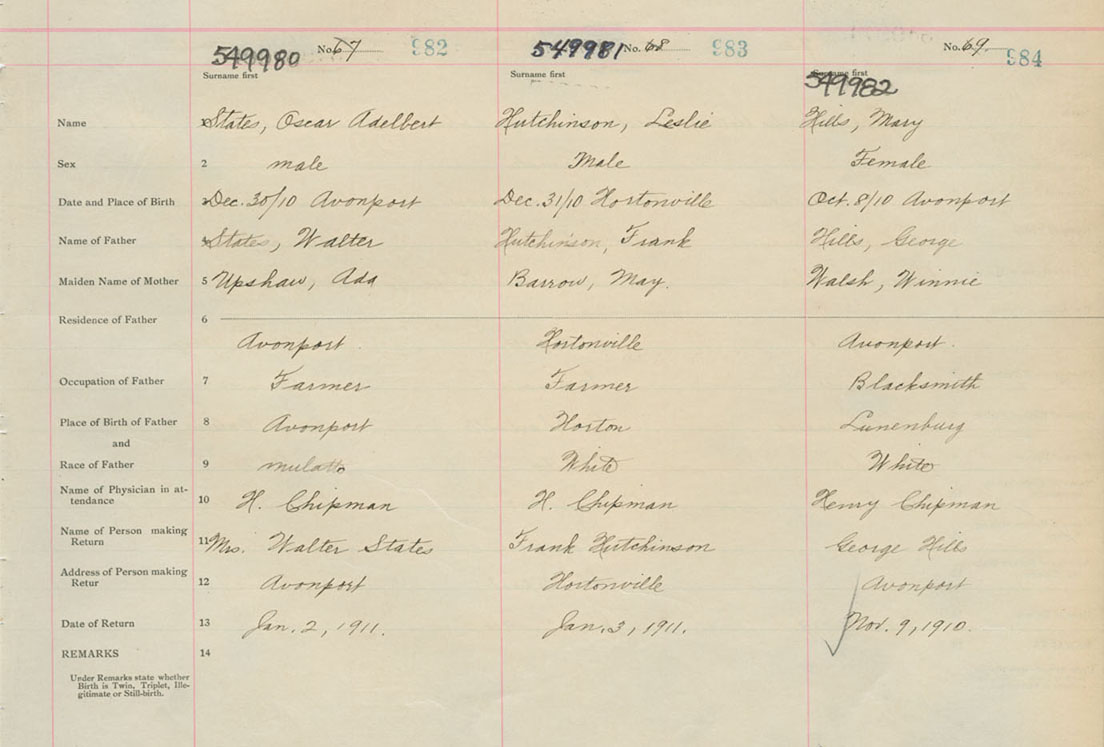 549980 No. 67 982 549981 No. 68 983 No. 69. 984
Surname first Surname first Surname first
549982
Name 1 States, Oscar Adelbert Hutchinson, Leslie Hills, Mary
Sex 2 male Male Female
Date and Place of Birth 3 Dec. 30/10 Avonport Dec. 31/10 Hortonville Oct. 8/10 Avonport
Name of Father 4 States, Walter Hutchinson, Frank Hills, George
Maiden Name of Mother 5 Upshaw, Ada Barrow, May. Walsh, Winnie
Residence of Father 6
Avonport. Hortonville Avonport.
Occupation of Father 7 Farmer Farmer Blacksmith
Place of Birth of Father 8 Avonport Horton Lunenburg
and
Race of Father 9 mulatto White White
Name of Physician in at-
tendance 10 H. Chipman H. Chipman Henry Chipman
Name of Person making
Return 11 Mrs. Walter States Frank Hutchinson George Hills
Address of Person making
Retur 12 Avonport Hortonville Avonport
Date of Return 13 Jan. 2, 1911. Jan. 3, 1911. Nov. 9, 1910.
REMARKS 14
Under Remarks state whether
Birth is Twin, Triplet, Ille-
gitimate or Still-birth.